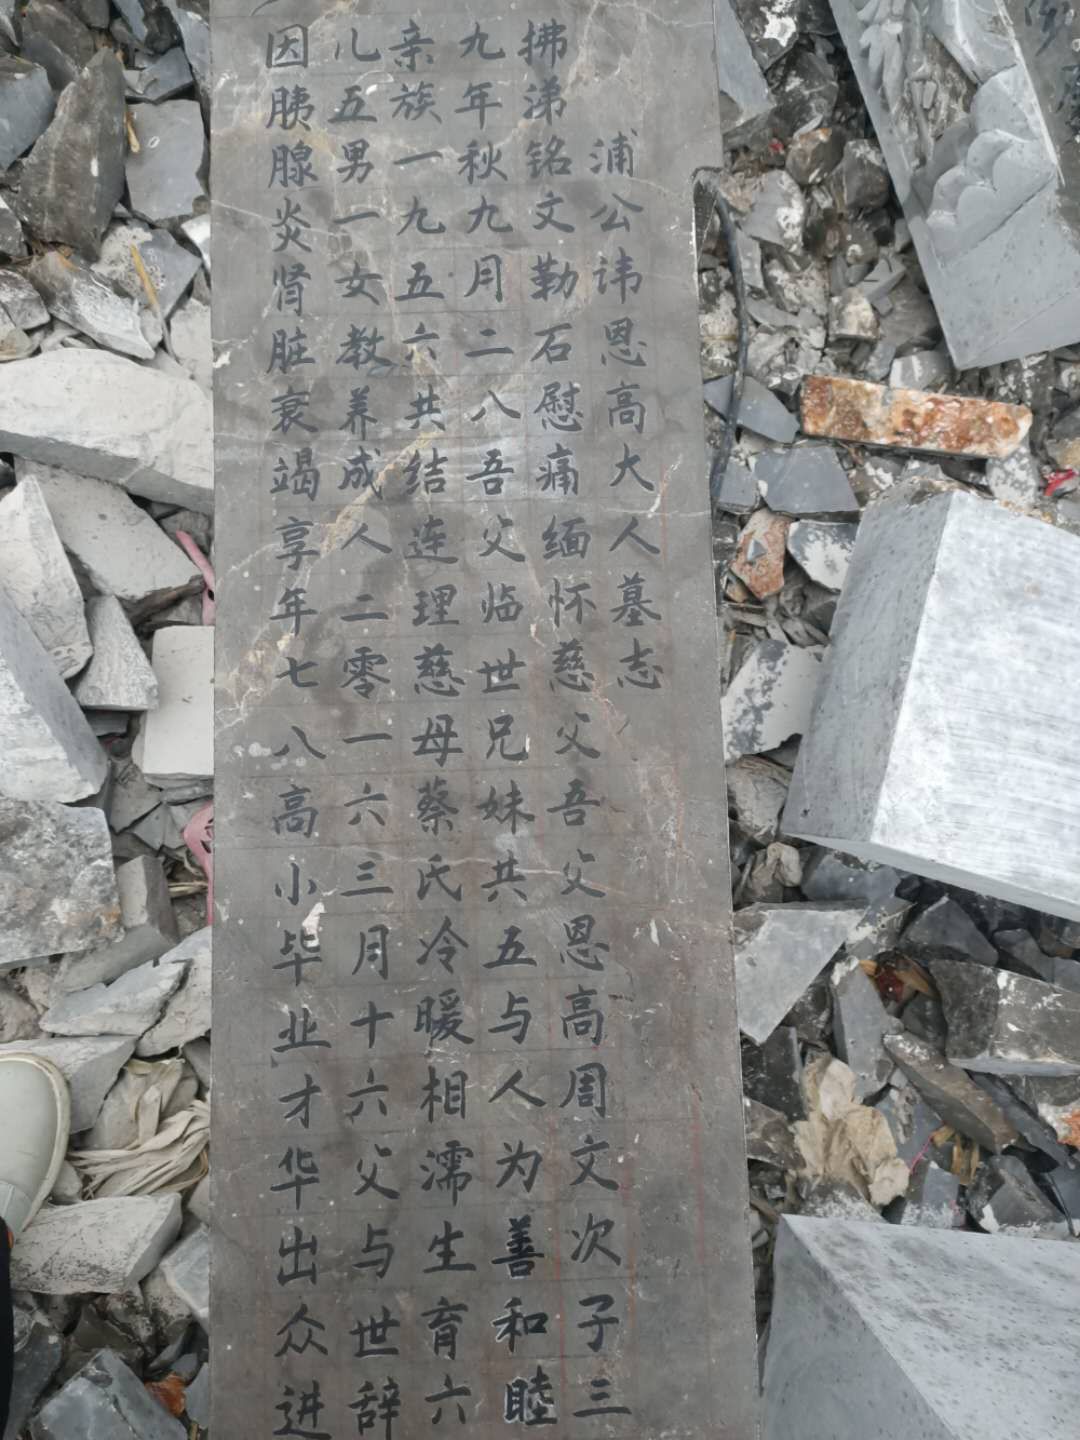 浦公讳恩高大人墓志
拂涕铭文勒石慰痛缅怀慈父吾父恩高周文次子三
九年秋九月二八吾父临世兄妹共五与人为善和睦
亲族一九五六共结连理慈母蔡氏冷暖相濡生育六
儿五男一女教养成人二零一六三月十六父与世辞
因胰腺炎肾脏衰竭享年七八高小毕业才华出众进